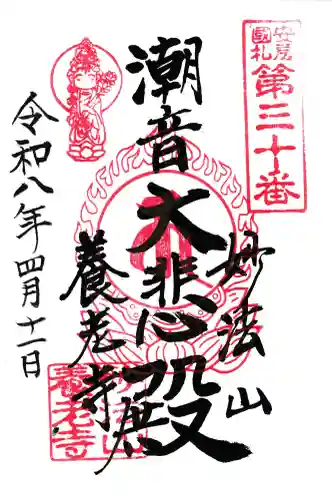 安房
國札
第三十番
妙法山
潮音
大悲殿
養老寺
令和八年四月十一日
妙法山
養老寺